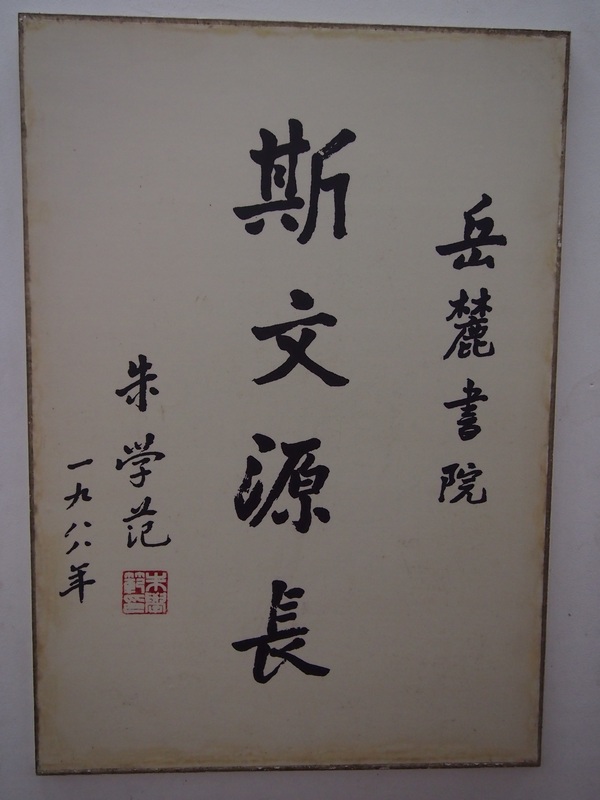 岳麓書院
斯文源長
朱学范
一九八八年
朱學範印